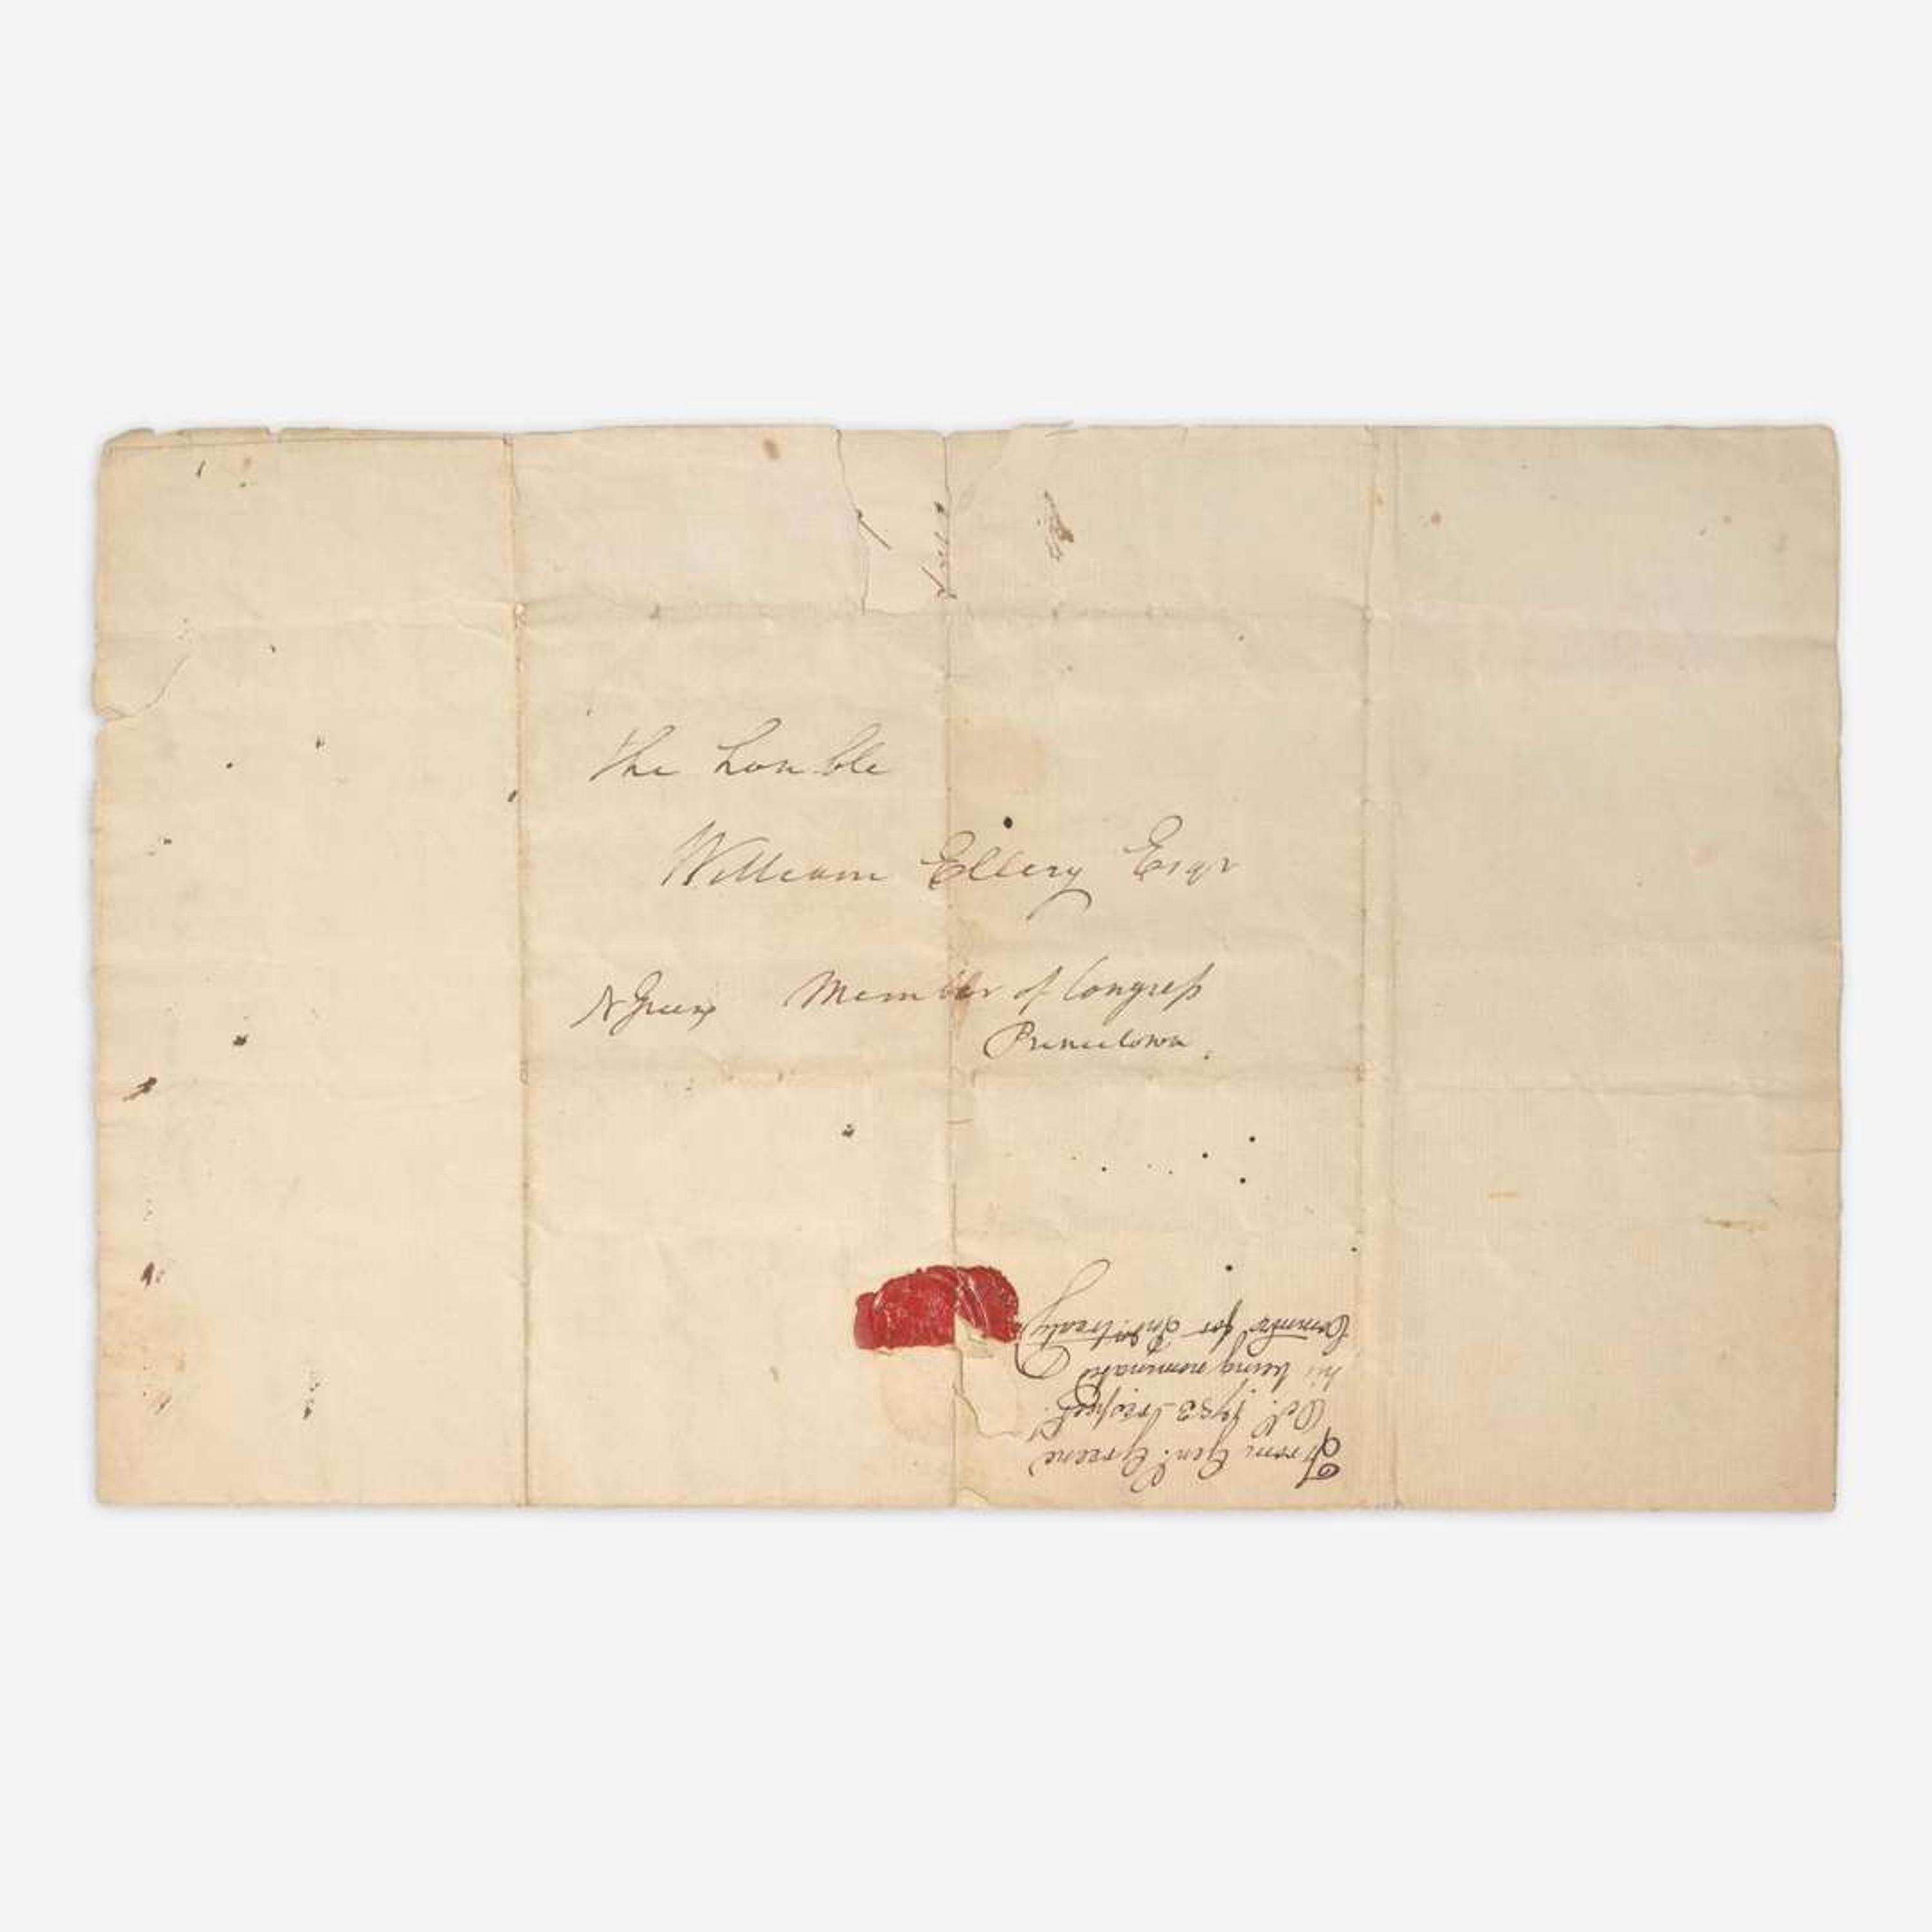 The honble
William Ellery Esqr
N Greene Member of Congress
Princetown.
From Gen: Greene
Oct. 1783 respect.
his being nominated
Commr for Ind: treaty